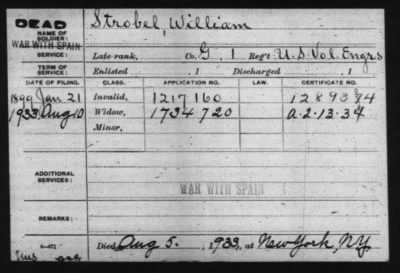 DEAD
NAME OF SOLDIER: Strobel, William
WAR WITH SPAIN
SERVICE: Late rank, Co. G, 1 Reg't U.S. Vol. Engrs
TERM OF SERVICE: Enlisted , 1 Discharged , 1
DATE OF FILING. CLASS. APPLICATION NO. LAW. CERTIFICATE NO.
1899 Jan 21 Invalid, 1217160
1933 Aug 10 Widow, 1734720 a-2-13-34
Minor,
ADDITIONAL SERVICES:
WAR WITH SPAIN
REMARKS:
Died Aug 5, 1933, at New York, N.Y.